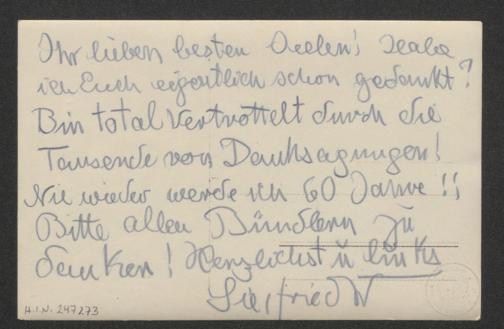 Ihr lieben besten Seelen! Habe
ich Euch eigentlich schon gedankt?
Bin total vertrottelt durch die
Tausende von Danksagungen!
Nie wieder werde ich 60 Jahre!!
Bitte allen Bündlern zu
danken! Herzlichst u links
Siegfried W
H.I.N. 247273